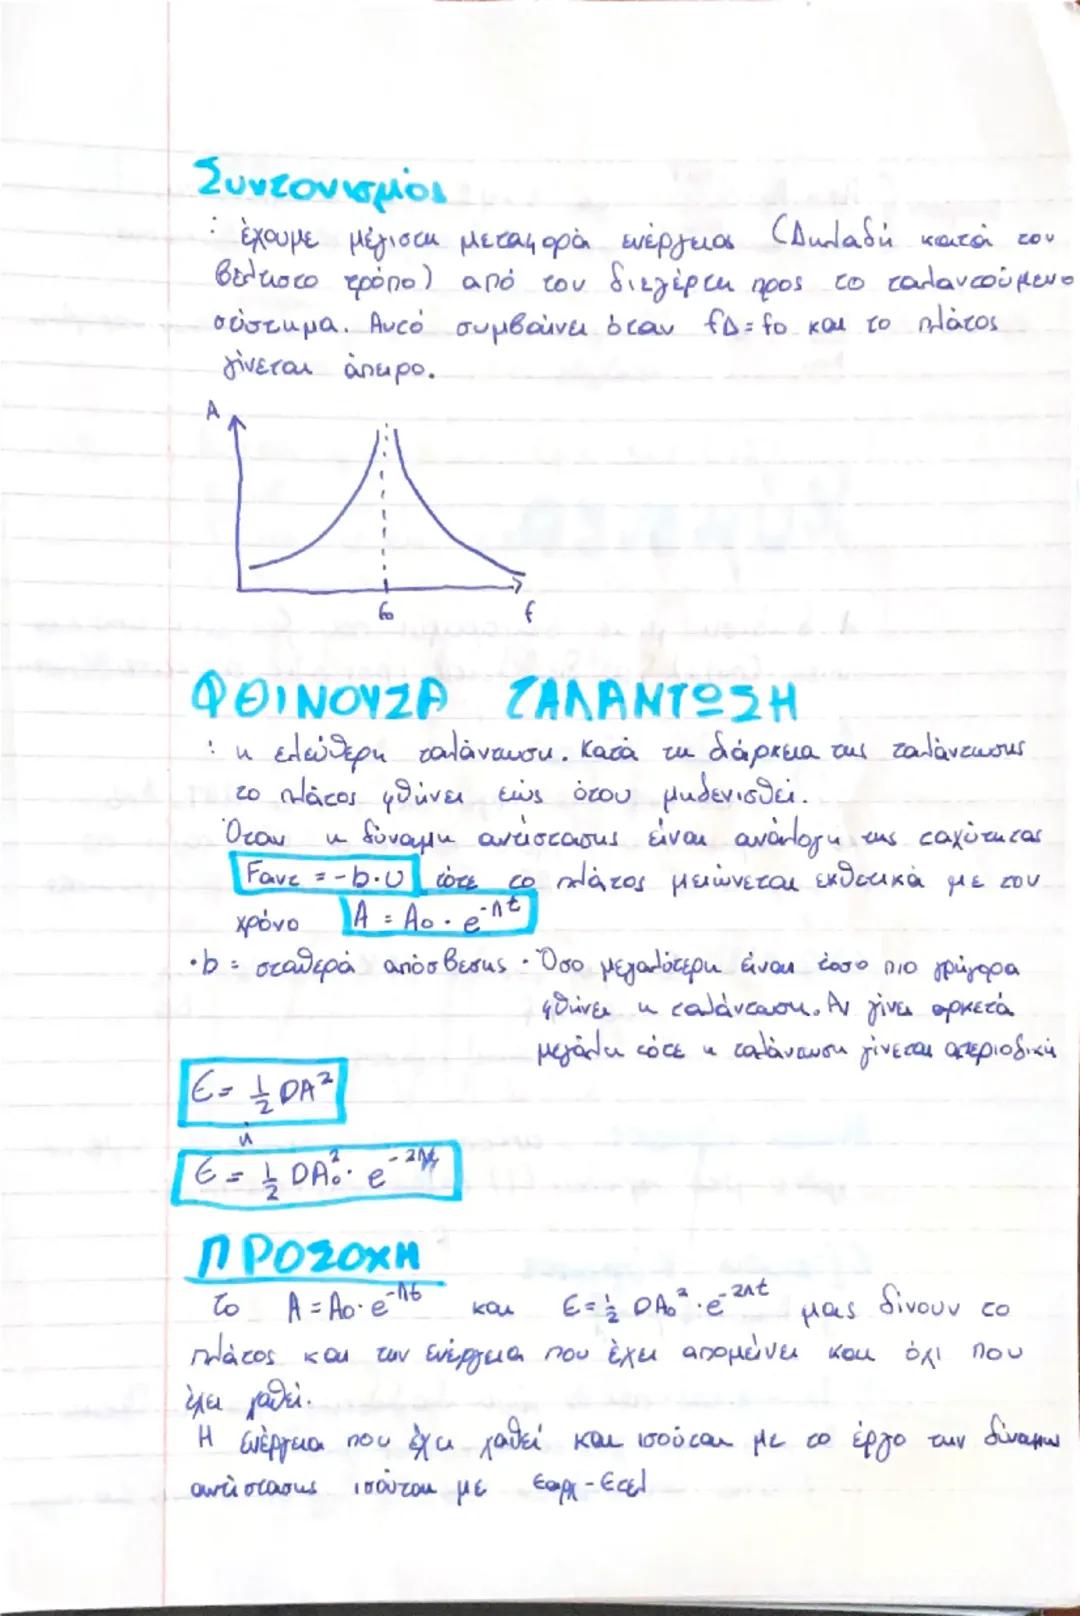 Συντονισμός
: έχουμε μέγιστη μεταφορά ενέργειας (Δηλαδή κατά τον
βέλτιστο τρόπο) από τον διεγέρτη προς το ταλαντούμενο
σύστημα. Αυτό συμβαίνει όταν fΔ = fo και το πλάτος
γίνεται άπειρο.
A
fo f
ΦΘΙΝΟΥΣΑ ΤΑΛΑΝΤΩΣΗ
: η ελεύθερη ταλάντωση. Κατά τη διάρκεια της ταλάντωσης
το πλάτος φθίνει έως ότου μηδενισθεί.
Όταν η δύναμη αντίστασης είναι ανάλογη της ταχύτητας
Fαντ = -b·υ τότε το πλάτος μειώνεται εκθετικά με τον
χρόνο A = Ao · e^-Λt
·b = σταθερά απόσβεσης · Όσο μεγαλύτερη είναι τόσο πιο γρήγορα
φθίνει η ταλάντωση. Αν γίνει αρκετά
μεγάλη τότε η ταλάντωση γίνεται απεριοδική
E = 1/2 DA²
ή
E = 1/2 DAo² · e^-2Λt
ΠΡΟΣΟΧΗ
Το A = Ao · e^-Λt και E = 1/2 DAo² · e^-2Λt μας δίνουν το
πλάτος και την ενέργεια που έχει απομείνει και όχι που
έχει χαθεί.
Η ενέργεια που έχει χαθεί και ισούται με το έργο την δύναμης
αντίστασης ισούται με Εαρχ - Ετελ